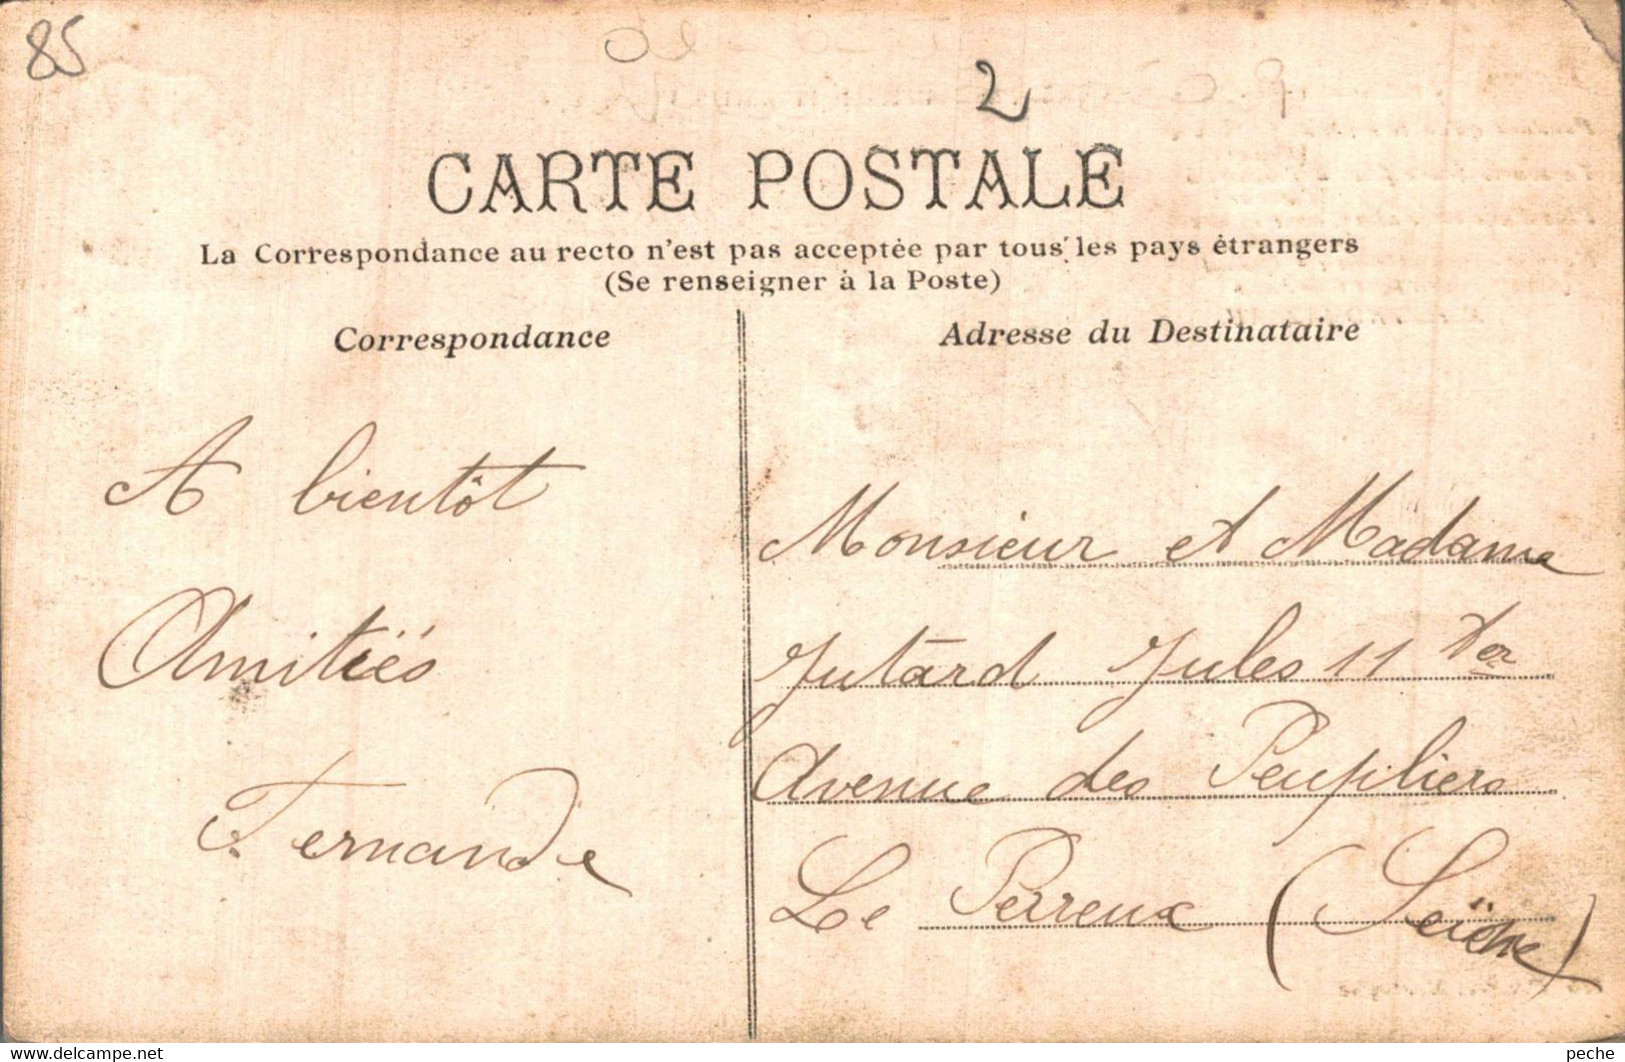 85
2
CARTE POSTALE
La Correspondance au recto n'est pas acceptée par tous les pays étrangers
(Se renseigner à la Poste)
Correspondance
A bientôt
Amitiés
Fernande
Adresse du Destinataire
Monsieur et Madame
Jutard Jules 11 ter
Avenue des Peupliers
Le Perreux (Seine)
peche